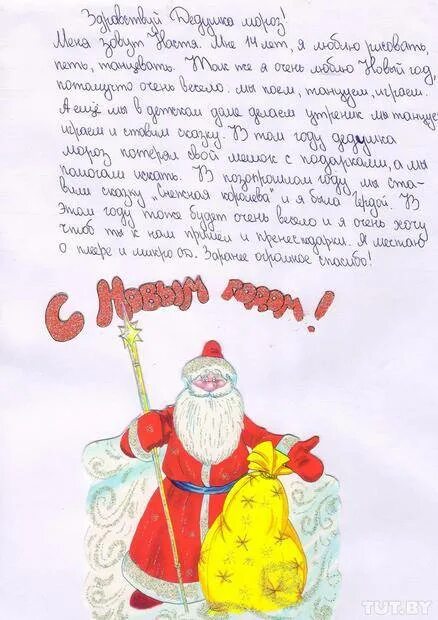 Здравствуй Дедушка мороз!
Меня зовут Настя. Мне 14 лет, я люблю рисовать,
петь, танцевать. Так же я очень люблю Новый год,
потомушто очень весело: мы поем, танцуем, играем.
А ещё мы в детском доме делаем утреник мы танцуем
играем и ставим сказку. В том году дедушка
мороз потерял свой мешок с подарками, а мы
помогали искать. В позопрошлом году мы ста-
вили сказку "Снежная королева" и я была Гердой. В
этом году тоже будет очень весело и я очень хочу
чтоб ты к нам пришел и принес подарки. Я мечтаю
о плеере и микро SD. Заранее огромное спосибо!
С Новым годом!
TUT.BY